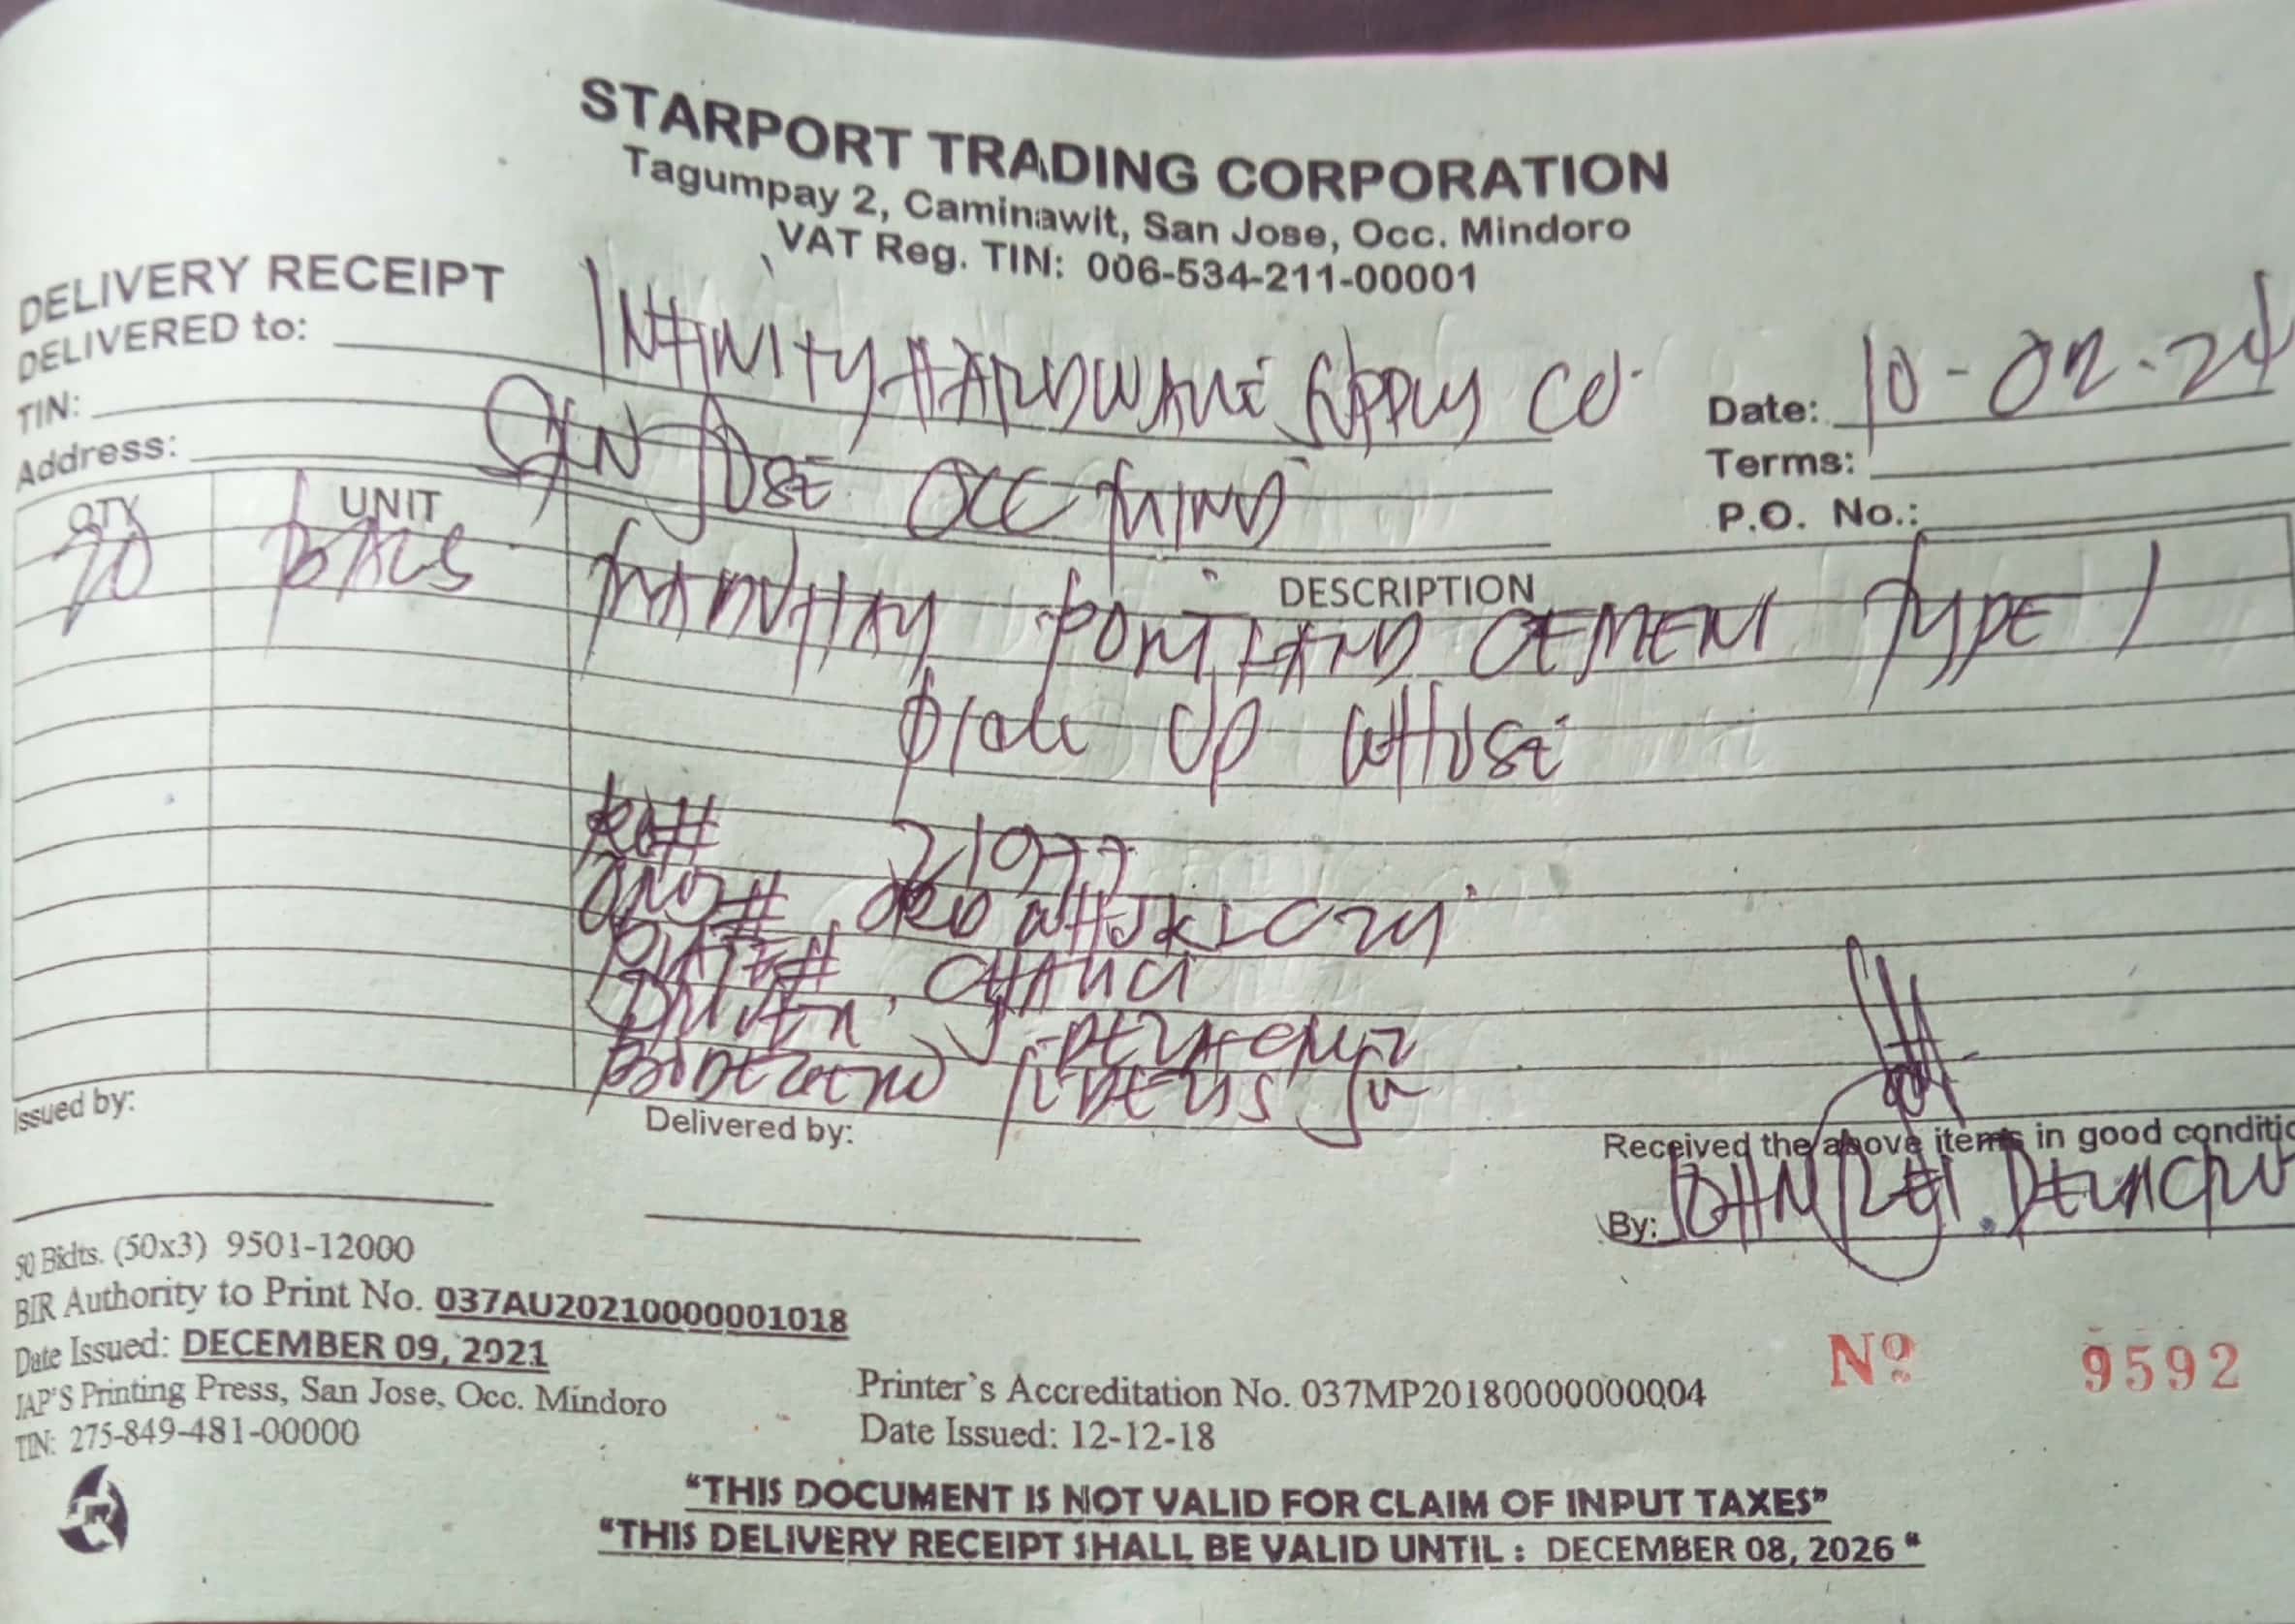 STARPORT TRADING CORPORATION
Tagumpay 2, Caminawit, San Jose, Occ. Mindoro
VAT Reg. TIN: 006-534-211-00001
DELIVERY RECEIPT
DELIVERED to: INFINITY HARDWARE SUPPLY CO.
TIN:
Address: SAN JOSE OCC MIND
Date: 10-02-24
Terms:
P.O. No.:
QTY UNIT DESCRIPTION
70 BAGS PORTLAND CEMENT TYPE 1
PICK UP WHOSE
21977
PLATE#
DRIVER J DELA CRUZ
Issued by:
Delivered by:
Received the above items in good conditio
By: JOHN REY DELA CRUZ
50 Bkdts. (50x3) 9501-12000
BIR Authority to Print No. 037AU20210000001018
Date Issued: DECEMBER 09, 2021
JAP'S Printing Press, San Jose, Occ. Mindoro
TIN: 275-849-481-00000
Printer's Accreditation No. 037MP20180000000004
Date Issued: 12-12-18
Nº 9592
"THIS DOCUMENT IS NOT VALID FOR CLAIM OF INPUT TAXES"
"THIS DELIVERY RECEIPT SHALL BE VALID UNTIL : DECEMBER 08, 2026 "